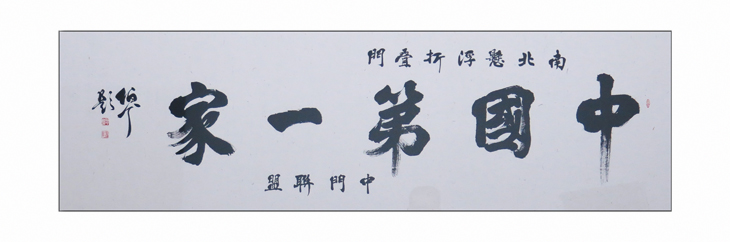 南北懸浮折疊門
中國第一家
中門聯盟